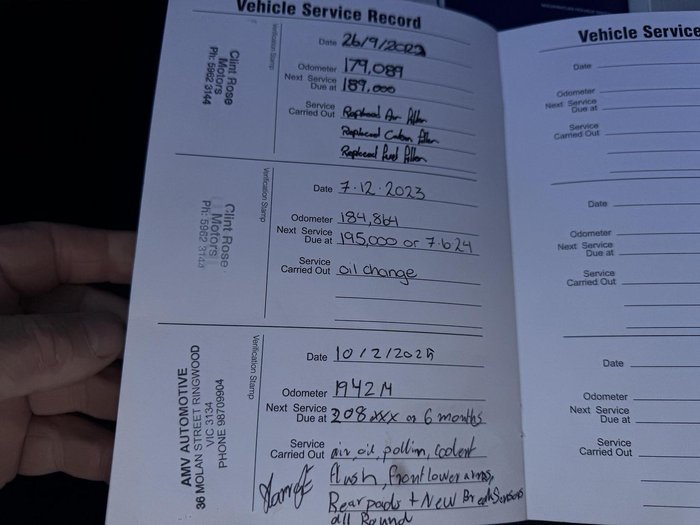 Vehicle Service Record
Verification Stamp
Clint Rose
Motors
Ph: 5962 3144
Date 26/9/2023
Odometer 179,089
Next Service
Due at 189,000
Service
Carried Out Replaced Air filter
Replaced Cabin filter
Replaced fuel filter
Verification Stamp
Clint Rose
Motors
Ph: 5962 3144
Date 7.12.2023
Odometer 184,864
Next Service
Due at 195,000 or 7.6.24
Service
Carried Out oil change
Verification Stamp
AMV AUTOMOTIVE
36 MOLAN STREET RINGWOOD
VIC 3134
PHONE 98709904
Date 10/2/2025
Odometer
Next Service
Due at 208xxx or 6 months
Service
Carried Out air, oil, pollin, coolent
flush, front lower arms,
Rear pads + New Break Sensors
all Round
Vehicle Service
Date
Odometer
Next Service
Due at
Service
Carried Out
Date
Odometer
Next Service
Due at
Service
Carried Out
Date
Odometer
Next Service
Due at
Service
Carried Out